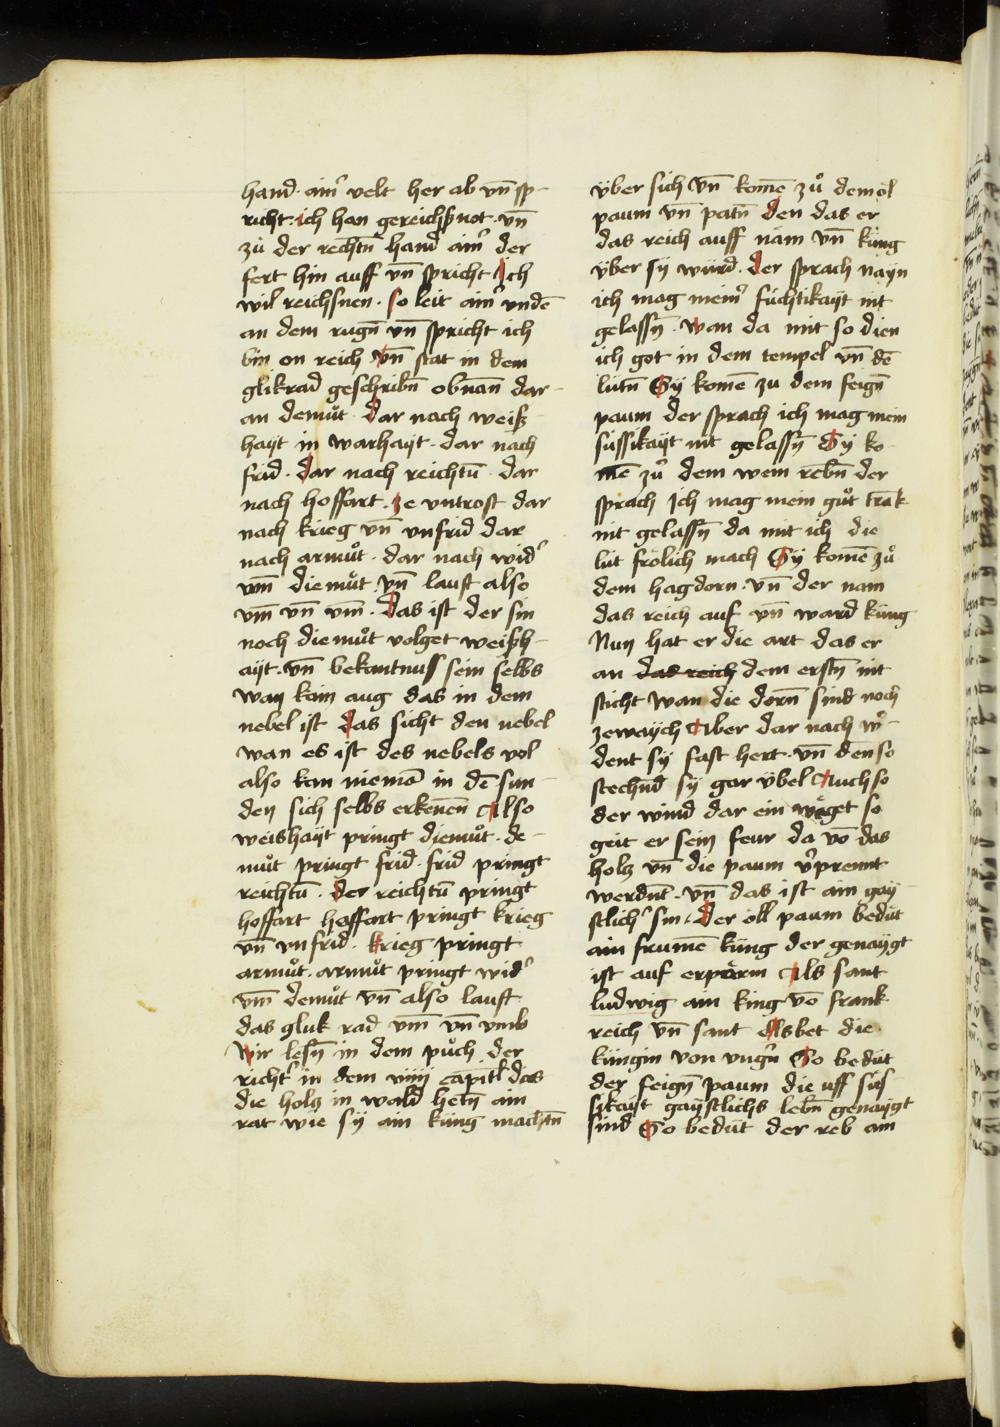 hand · aimˀ velt her ab vn̄ sp-
richt · ich han gereichsnot · vn̄
zů der rechtn̄ hand aimˀ der
fert hin auff vn̄ spricht Ich
wil reichsnen · so leit aimˀ vndē
an dem rugn̄ vn̄ spricht ich
bin on reich vn̄ stat in dem
glikrad geschribn̄ obnan̄ dar-
an demůt · dar nach weiß-
hayt in warhayt · dar nach
frid · dar nach reichtū · dar
nach hoffart · ze vntrost dar
nach krieg vn̄ vnfrid dar
nach armůt · dar nach widˀ
vm̄ diemůt vn̄ lauft also
vm̄ vn̄ vm̄ · das ist der sin
noch diemůt volget weißh-
ayt · vn̄ bekantnuss sein selbs
wan kain aug das in dem
nebel ist das sicht den nebel
wan es ist des nebels vol
also kan niemā in dē sun-
den sich selbs erkenēn Also
weishayt pringt diemůt · de-
můt pringt frid · frid pringt
reichtū · der reichtū pringt
hoffart hoffart pringt krieg
vn̄ vnfrid · krieg pringt
armůt · armůt pringt widˀ
vm̄ demůt vn̄ also lauft
das gluk rad vm̄ vn̄ vmb
Wir lesn̄ in dem půch der
richtˀ in dem viiij capitl̄ das
die holtz in wald hetn̄ ain
rat wie sy ain küng machtn̄
über sich vn̄ komē zů dem öl
paum vn̄ patn̄ den das er
das reich auff nam vn̄ küng
über sy würd · der sprach nayn
ich mag meinˀ füchtikayt nit
gelassn̄ · wan da mit so dien
ich got in dem tempel vn̄ dē
lütn̄ Sy komē zu dem feign̄
paum der sprach ich mag mein
süssikayt nit gelassn̄ Sy ko-
mē zů dem wein rebn̄ der
sprach Ich mag mein gůt trāk
nit gelassn̄ da mit ich die
lüt frölich mach Sy komē zů
dem hagdorn · vn̄ der nam
das reich auf vn̄ ward küng
Nun hat er die art das er
an das reich dem erstn̄ nit
sticht wan die dorn̄ sind noch
zewaych Aber dar nach wˀ-
dent sy fast hert · vn̄ den so
stechnd sy gar übel Auch so
der wind dar ein wäget so
geit er sein feur da vō das
holtz vn̄ die paum vˀprennt
werdn̄t · vn̄ das ist ain gay-
stlichˀ sin · Der öll paum bedüt
ain frumē küng der genaygt
ist auf erpärm Als sant
ludwig ain king vō frank-
reich vn̄ sant elsbet die
küngin von vngˀn So bedüt
der feign̄ paum die uff süs-
sikayt gaystlichs lebn̄ genaygt
sind So bedüt der reb ain